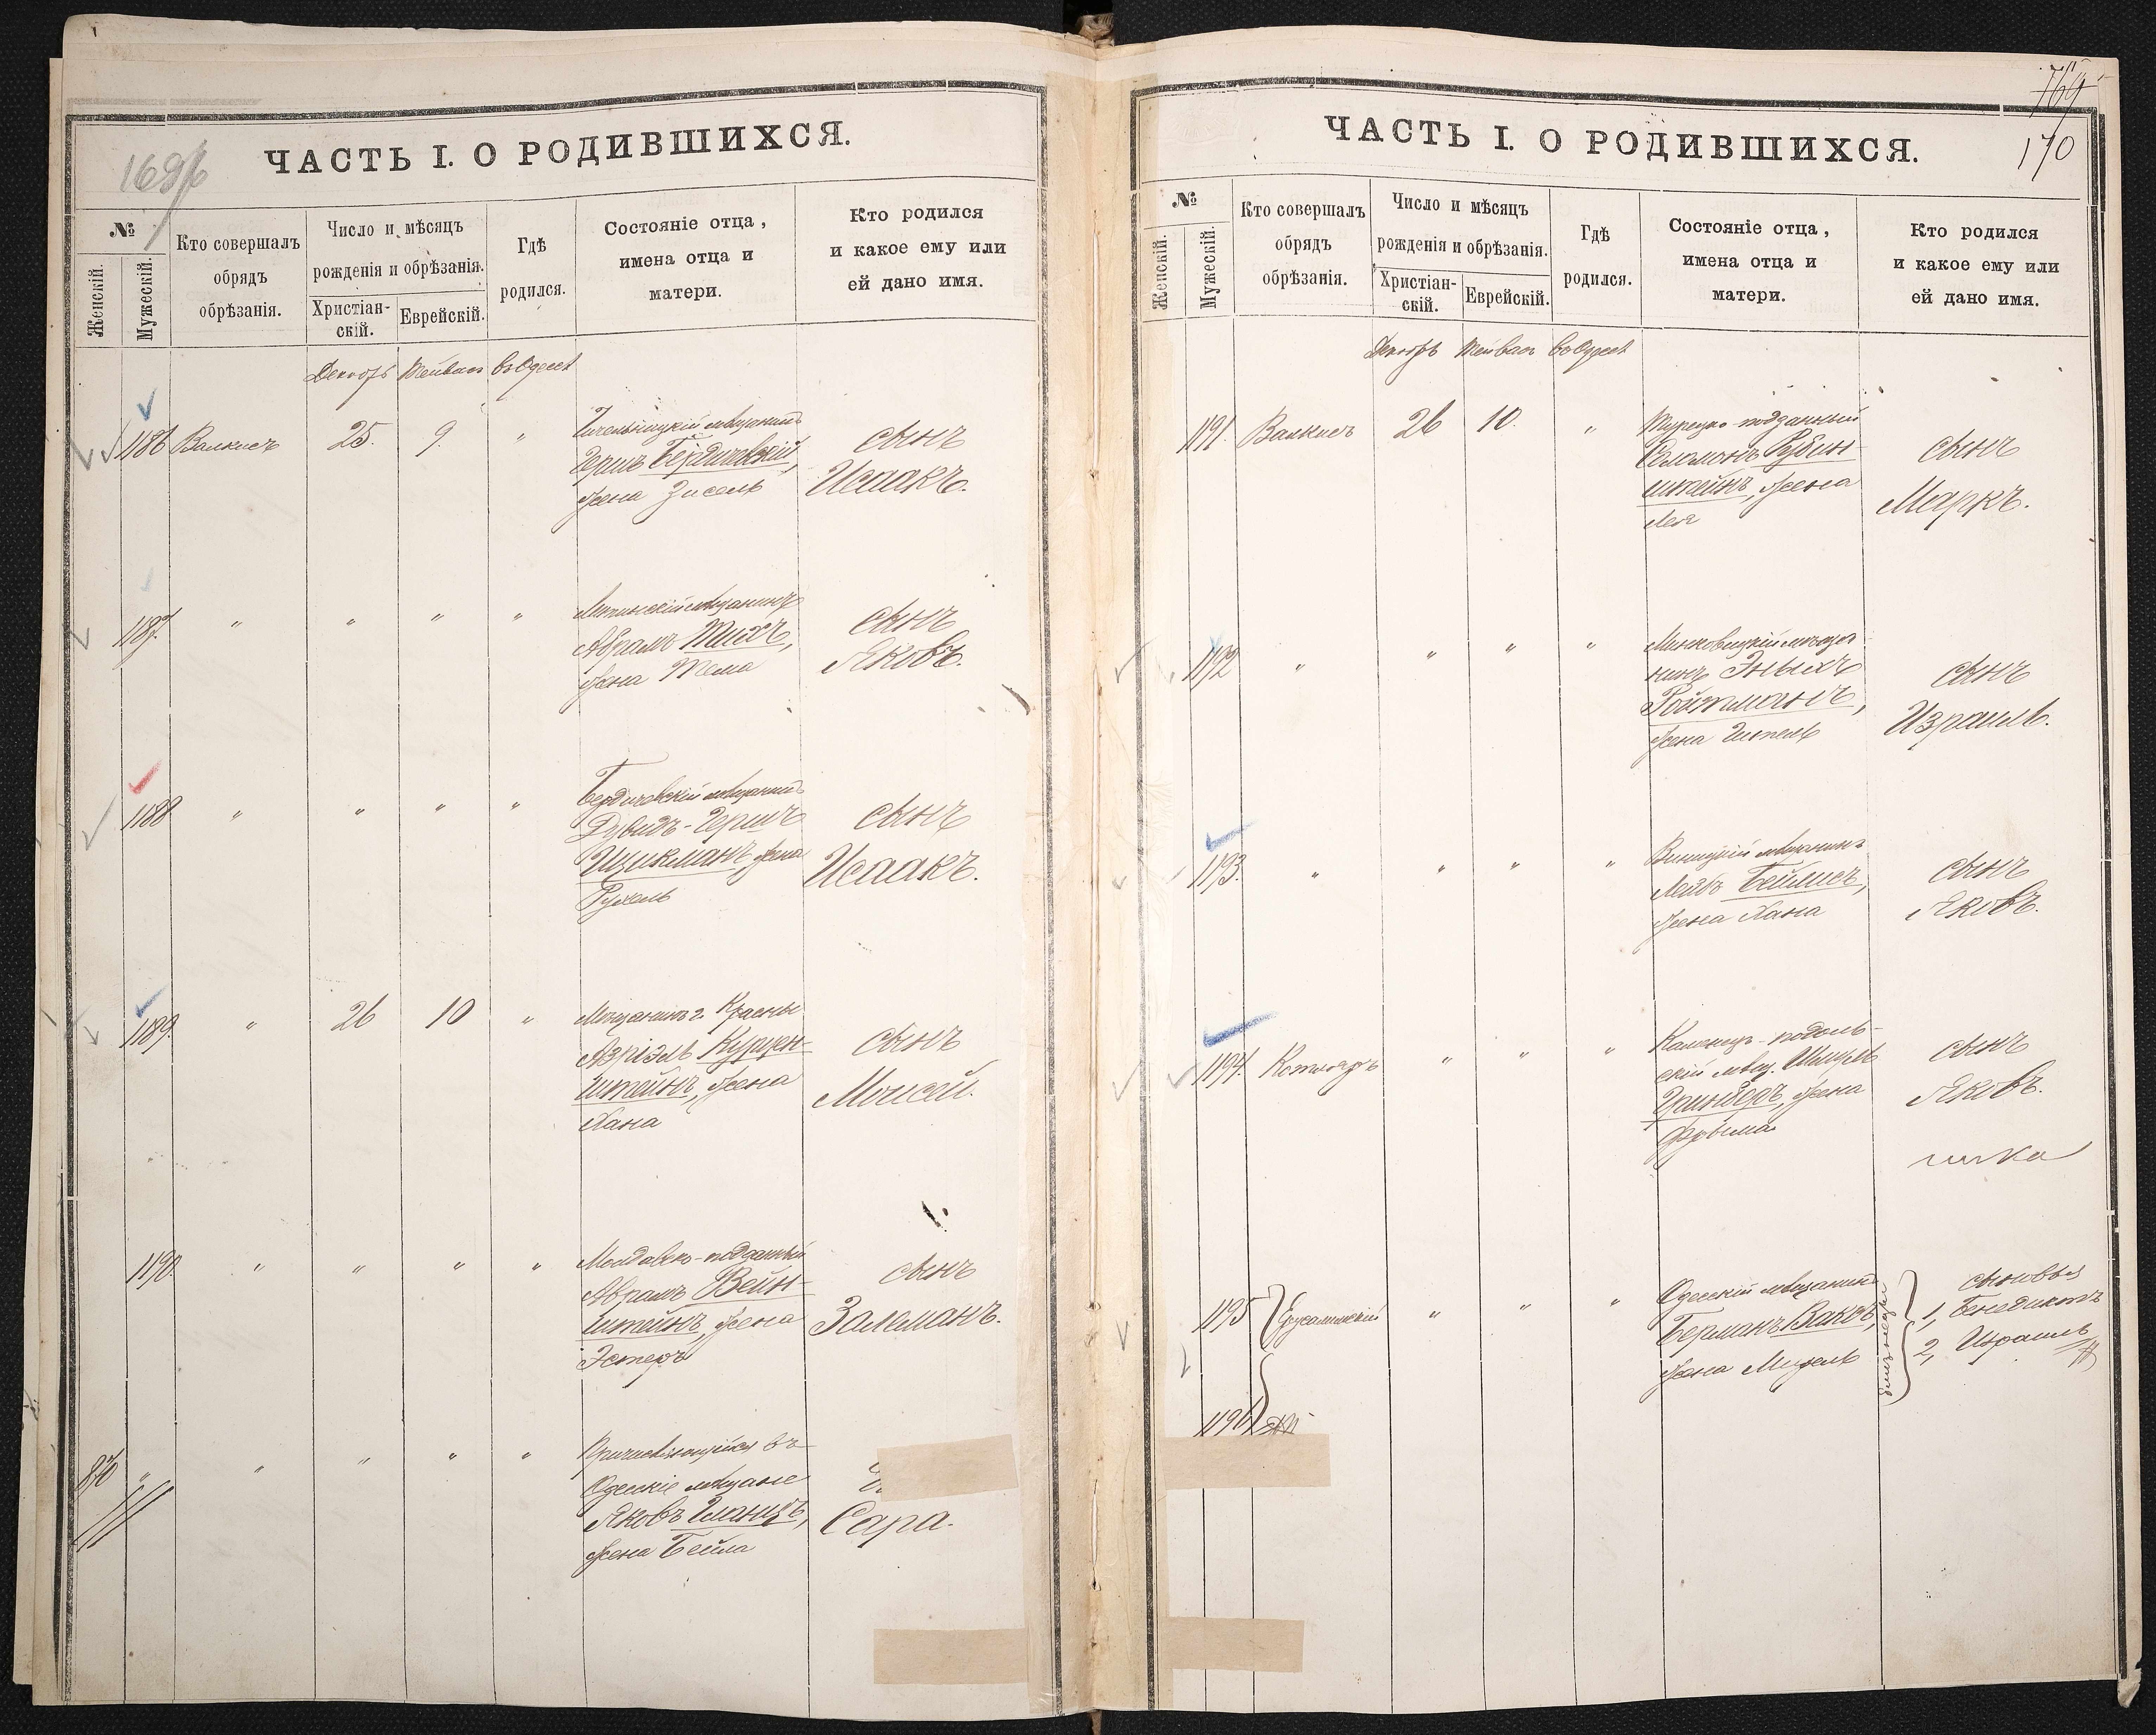 ЧАСТЬ I. О РОДИВШИХСЯ.
№
Женскій.
Мужескій.
Кто совершалъ
обрядъ
обрѣзанія.
Число и мѣсяцъ
рожденія и обрѣзанія.
Христіан-
скій.
Еврейскій.
Гдѣ
родился.
Состояніе отца,
имена отца и
матери.
Кто родился
и какое ему или
ей дано имя.
Декабрь Тейвас въ Одессѣ
1186 Валкисъ 25. 9. "
мѣщанинъ
Гершъ Бердичевскій,
жена Зисель
сынъ
Исаакъ.
1187. " " " "
мѣщанинъ
Абрамъ Тихъ,
жена Тема
сынъ
Яковъ.
1188 " " " "
Бердичевскій мѣщанинъ
Дувидъ-Гершъ
Ицикманъ, жена
Рухель
сынъ
Исаакъ.
1189. " 26 10 "
Мѣщанинъ г. Красны
Азріэль Курцен-
штейнъ, жена
Хана
сынъ
Моисей.
1190. " " " "
Молдавско-подданный
Абрамъ Вейн-
штейнъ, жена
Эстеръ
сынъ
Залманъ.
870 " " " " "
Причисляющійся въ
Одесскіе мѣщане
Яковъ Гланцъ,
жена Бейла
Сара.
ЧАСТЬ I. О РОДИВШИХСЯ.
170
№
Женскій.
Мужескій.
Кто совершалъ
обрядъ
обрѣзанія.
Число и мѣсяцъ
рожденія и обрѣзанія.
Христіан-
скій.
Еврейскій.
Гдѣ
родился.
Состояніе отца,
имена отца и
матери.
Кто родился
и какое ему или
ей дано имя.
Декабрь Тейвас въ Одессѣ
1191. Валкисъ 26 10. "
Турецко-подданный
Соломонъ Рубин-
штейнъ, жена
Лея
сынъ
Маркъ.
1192 " " " "
Минковецкій мѣща-
нинъ Эныхъ
Ройтманъ,
жена
сынъ
Израиль.
1193. " " " "
мѣщанинъ
Лейбъ Бейлисъ,
жена Хана
сынъ
Яковъ.
1194. Котляръ " " "
Каменецъ-подоль-
скій мѣщ. Шмуль
жена
Фрыма
сынъ
Яковъ.
1195 Ерусалимскій " " "
Одесскій мѣщанинъ
Берманъ Ваксъ,
жена
близнецы
сыновья
1, Бенедиктъ
2, Израиль
1196